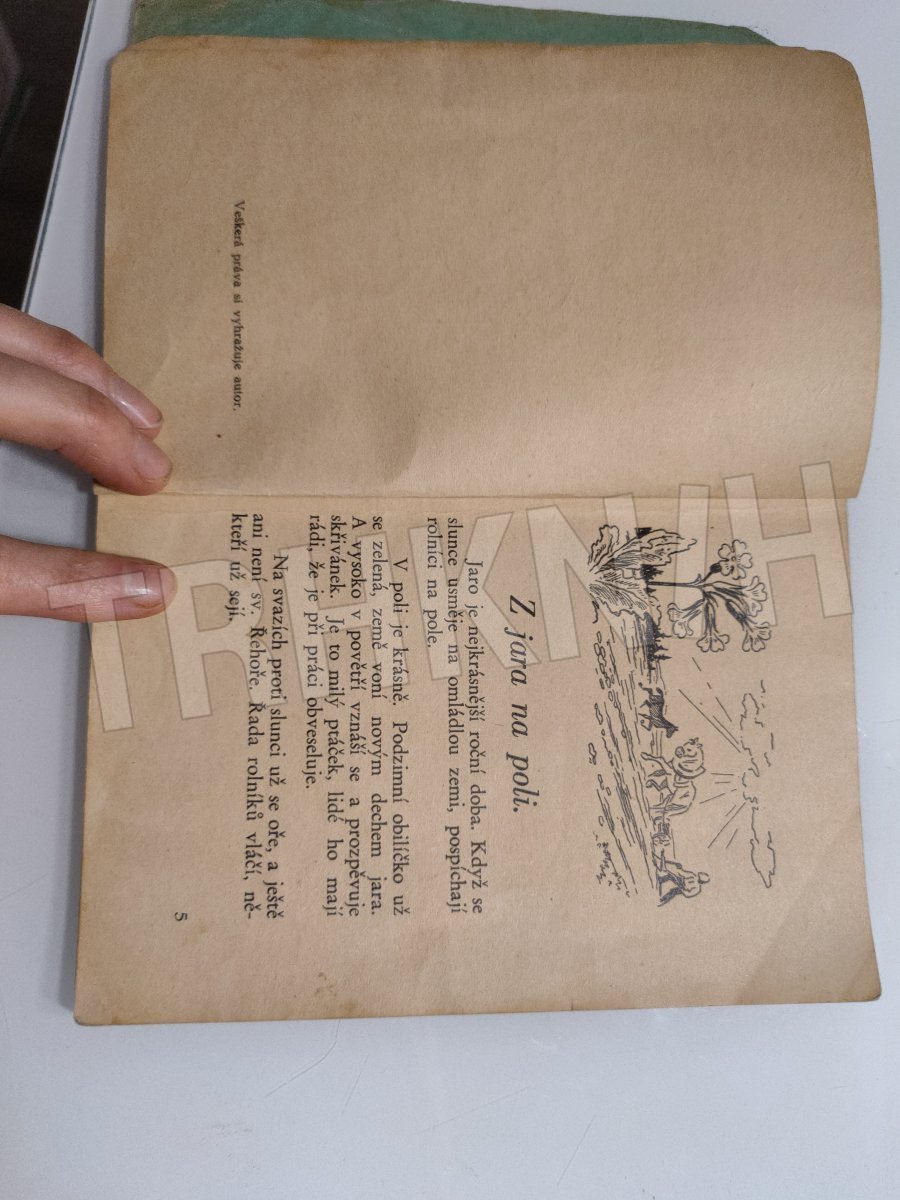 Veškerá práva si vyhražuje autor.
Z jara na poli.
Jaro je nejkrásnější roční doba. Když se
slunce usměje na omládlou zemi, pospíchají
rolníci na pole.
V poli je krásně. Podzimní obilíčko už
se zelená, země voní novým dechem jara.
A vysoko v povětří vznáší se a prozpěvuje
skřivánek. Je to milý ptáček, lidé ho mají
rádi, že je při práci obveseluje.
Na svazích proti slunci už se oře, a ještě
ani není sv. Řehoře. Řada rolníků vláčí, ně-
kteří už sejí.
5
TREKNIH